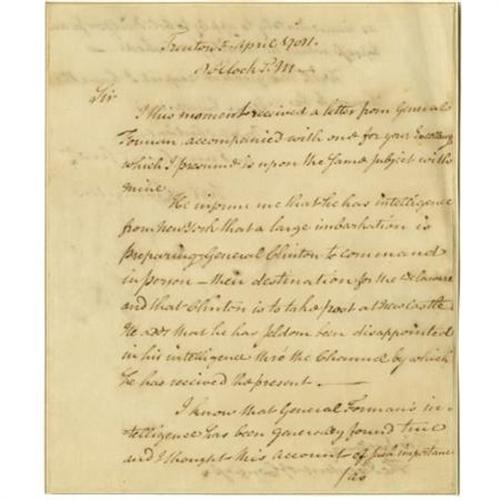 Trenton 5 April 1781.
8 oClock P.M.
Sir
I this moment received a letter from General
Forman accompanied with one for your Excellency
which I presume is upon the same subject with
mine.
He informs me that he has intelligence
from New York that a large imbarkation is
preparing General Clinton to command
in person — their destination for the Delaware
and that Clinton is to take post at New Castle.
He adds that he has seldom been disappointed
in his intelligence thro the Channel by which
he has received the present. —
I know that General Forman's in-
telligence has been generally found true
and I thought this account of such importance
(as